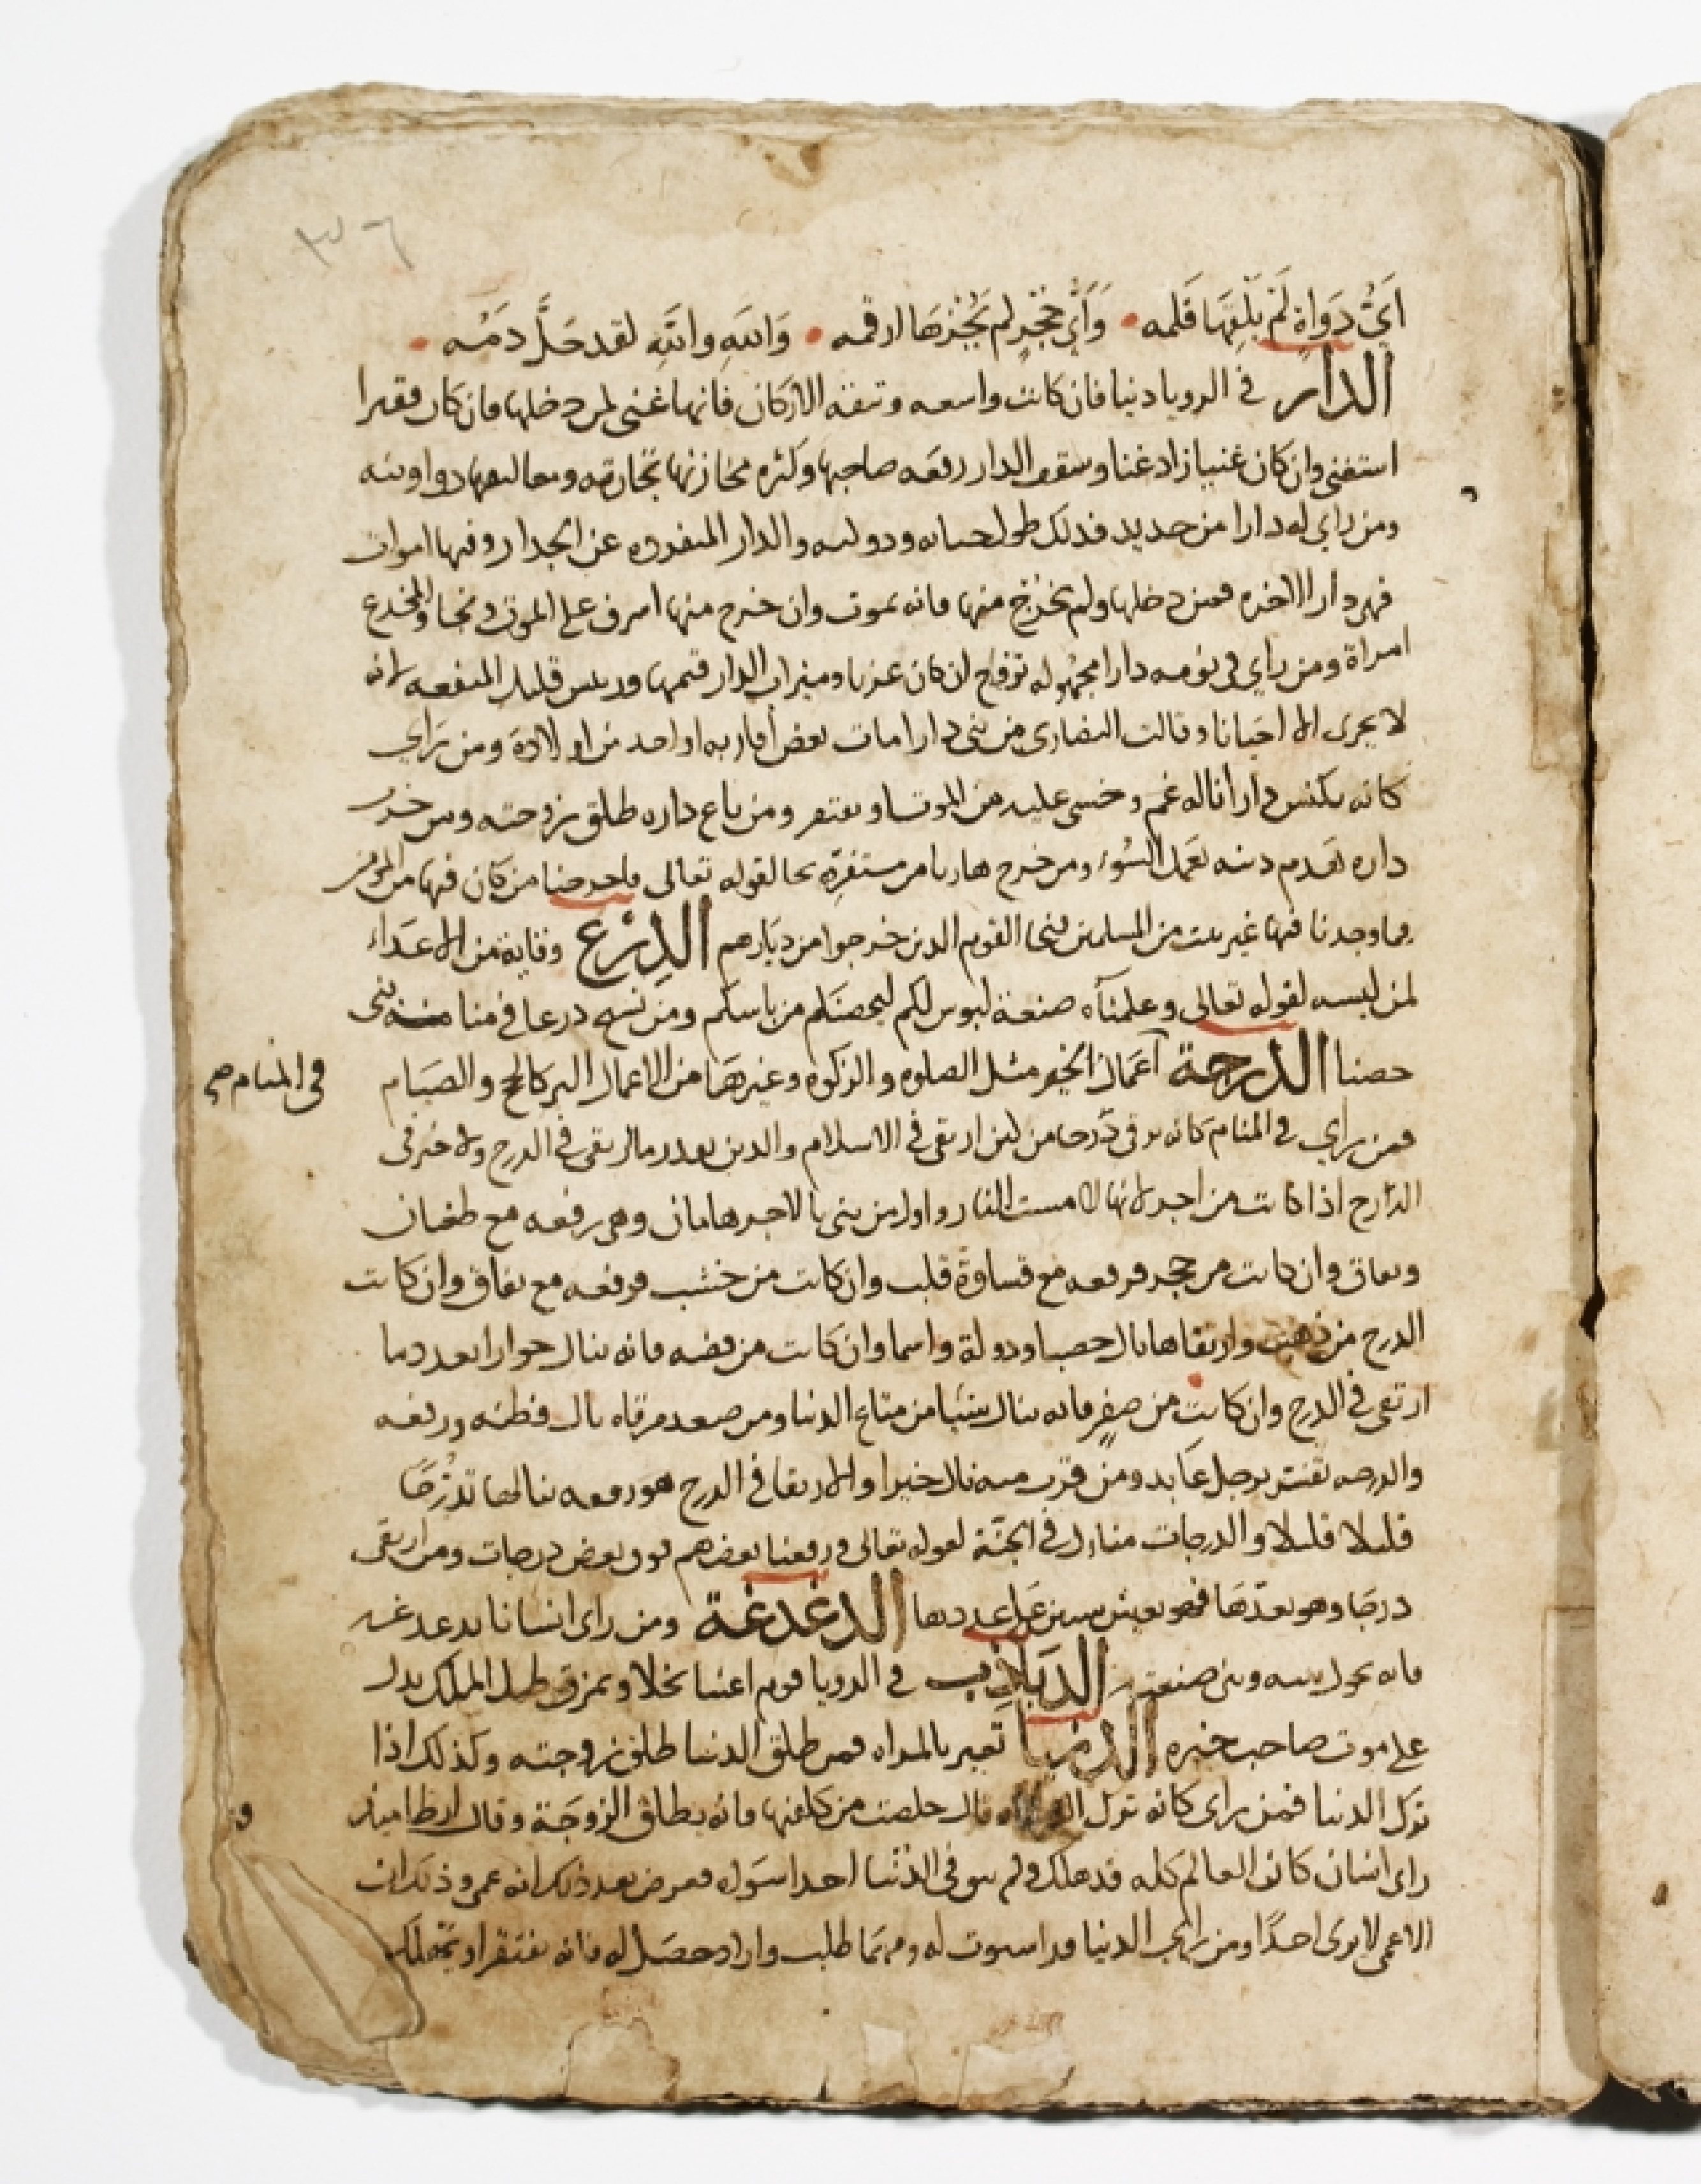 ٣٦
اَيُّ دَوَاةٍ لَمْ يَلِقْهَا قَلمه • وَاَيُّ حَجَرٍ لم يَجُزهَا ارقمه • وَاللهِ واللهِ لقد حَلَّ دمُه •
الدار في الرويا دنيا فان كانت واسعه وثيقه الاركان فانها غنى لمن دخلها فان كان فقيرا
استغنى وان كان غنيا زاد غنا وسقف الدار رفعه صاحبها وكثره مخازنها تجارته ومعاليقها دواوينه
ومن راي له دارا من حديد فذلك طول حياته ودولته والدار المنفرده عن الجدار وفيها اموات
فهي دار الاخره فمن دخلها ولم يخرج منها فانه يموت وان خرج منها اشرف على الموت ونجا والمخدع
امراة ومن راي في نومه دارا مجهوله تزوج ان كان عزبا وميزاب الدار قيمها ورييس قليل المنفعه لانه
لا يجرى الا احيانا وقالت النصارى من بنى دارا مات بعض اقاربه او احد من اولاده ومن رَاي
كانه يكنس دارا ناله غم وخشى عليه من الموت او يفتقر ومن باع داره طلق زوجته ومن
داره تهدم دينه بعمل السُوء ومن خرج هاربا من مستقره نجا لقوله تعالى فاخرجنا من كان فيها من المومنين
فما وجدنا فيها غير بيت من المسلمين فنجا القوم الذين خرجوا من ديارهم الدِرْع وقاية من الاعداء
لمن لبسه لقوله تعالى وعلمناه صنعة لبوس لكم ليحصنكم من باسكم ومن نسج درعا في منامه بنى
حصنا الدرجة اعمال الخير مثل الصلوه والزكوه وغيرهَا من الاعمال البر كالحج والصيام
في المنام صح
فمن راي في المنام كانه يرقى دَرجا من لبن ارتقى في الاسلام والدين بقدر ما ارتقى في الدرج ولا خير في
الدّرج اذا كانت من اجر لانها مست النار واول من بنى بالاجر هامان وهي رفعه مع طغيان
ونفاق وان كانت من حجر فرفعه مع قساوة قلب وان كانت من خشب فرفعه مع نفاق وان كانت
الدرج من ذهب وارتقاها نال خصبا ودولة واسما وان كانت من فضه فانه ينال جوارا بعدد ما
ارتقى في الدرج وان كانت من صفر فانه ينال شيا من متاع الدنيا ومن صعد مرقاه نال فطنه ورفعه
والدرجه تفسر برجل عَابد ومن قرب منه نال خيرا والارتقا في الدرج هو رفعه ينالها تدرُّجًا
قليلا قليلا والدرجات منازل في الجنّة لقوله تعالى ورفعنا بعضهم فوق بعض درجات ومن ارتقى
درجَا وهو يعدّهَا فهو يعيش سنين عَلى عددها الدغدغة ومن راى انسانا يدغدغه
فانه يحول بينه وبين صنعته الدَبادِب في الرويا قوم اغنيا بخلا وتمزق طبل الملك يدل
على موت صاحب خبره الدنيا تعبر بالمراه فمن طلق الدنيا طلق زوجته وكذلك اذا
ترك الدنيا فمن راى كانه ترك قال خلصت من كلفتها فانه يطلق الزوجَة وقال ارطاميذ
راى انسان كان العالم كله قد هلك ولم يبق في الدّنيا احدا سَواه فعرض بعد ذلك انه عمى وذلك ان
الاعمى لا يرى احدًا ومن راي الدنيا قد استوت له ومهمَا طلب واراد حصَل له فانه يفتقر او